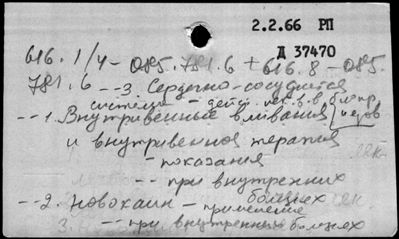 2.2.66 РП
Д 37470
616.1/4-085.781.6+616.8-085.
781.6 --3. Сердечно-сосудистая
система - действ. лек. в-в
--1. Внутривенные вливания
и внутривенная терапия
- показания
-- при внутренних
болезнях
--2. Новокаин - применение
3. -- при внутренных болезнях